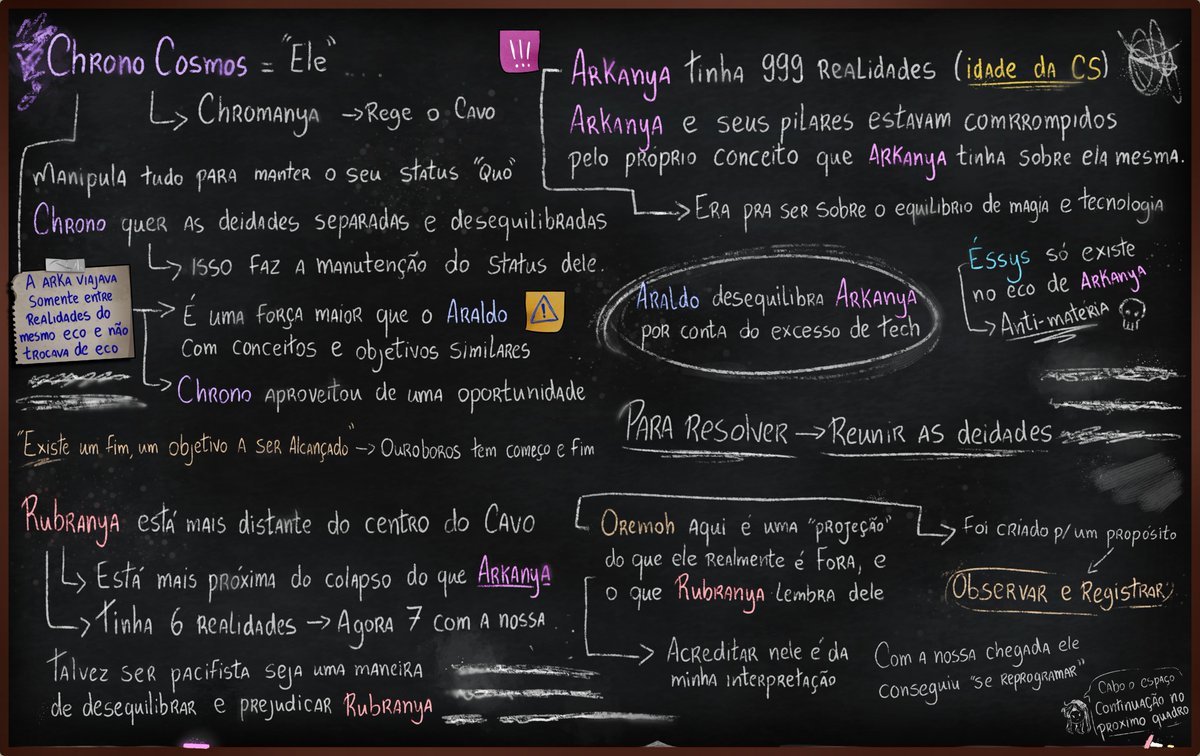 Chrono Cosmos = "Ele"
Chromanya → Rege o Cavo
Manipula tudo para manter o seu status "Quo"
Chrono quer as deidades separadas e desequilibradas
isso faz a manutenção do status dele.
A Arka viajava
somente entre
realidades do
mesmo eco e não
trocava de eco
É uma força maior que o Araldo
com conceitos e objetivos similares
Chrono aproveitou de uma oportunidade
"Existe um fim, um objetivo a ser alcançado" → Ouroboros tem começo e fim
Rubranya está mais distante do centro do Cavo
Está mais próxima do colapso do que Arkanya
Tinha 6 realidades → Agora 7 com a nossa
Talvez ser pacifista seja uma maneira
de desequilibrar e prejudicar Rubranya
!!!
Arkanya tinha 999 realidades (idade da CS)
Arkanya e seus pilares estavam comrrompidos
pelo próprio conceito que Arkanya tinha sobre ela mesma.
Era pra ser sobre o equilibrio de magia e tecnologia
Araldo desequilibra Arkanya
por conta do excesso de tech
Éssys só existe
no eco de Arkanya
Anti-matéria
Para resolver → Reunir as deidades
Oremoh aqui é uma "projeção"
do que ele realmente é fora, e
o que Rubranya lembra dele
Foi criado p/ um propósito
Observar e Registrar
Acreditar nele é da
minha interpretação
Com a nossa chegada ele
conseguiu "se reprogramar"
Cabo o espaço
Continuação no
proximo quadro